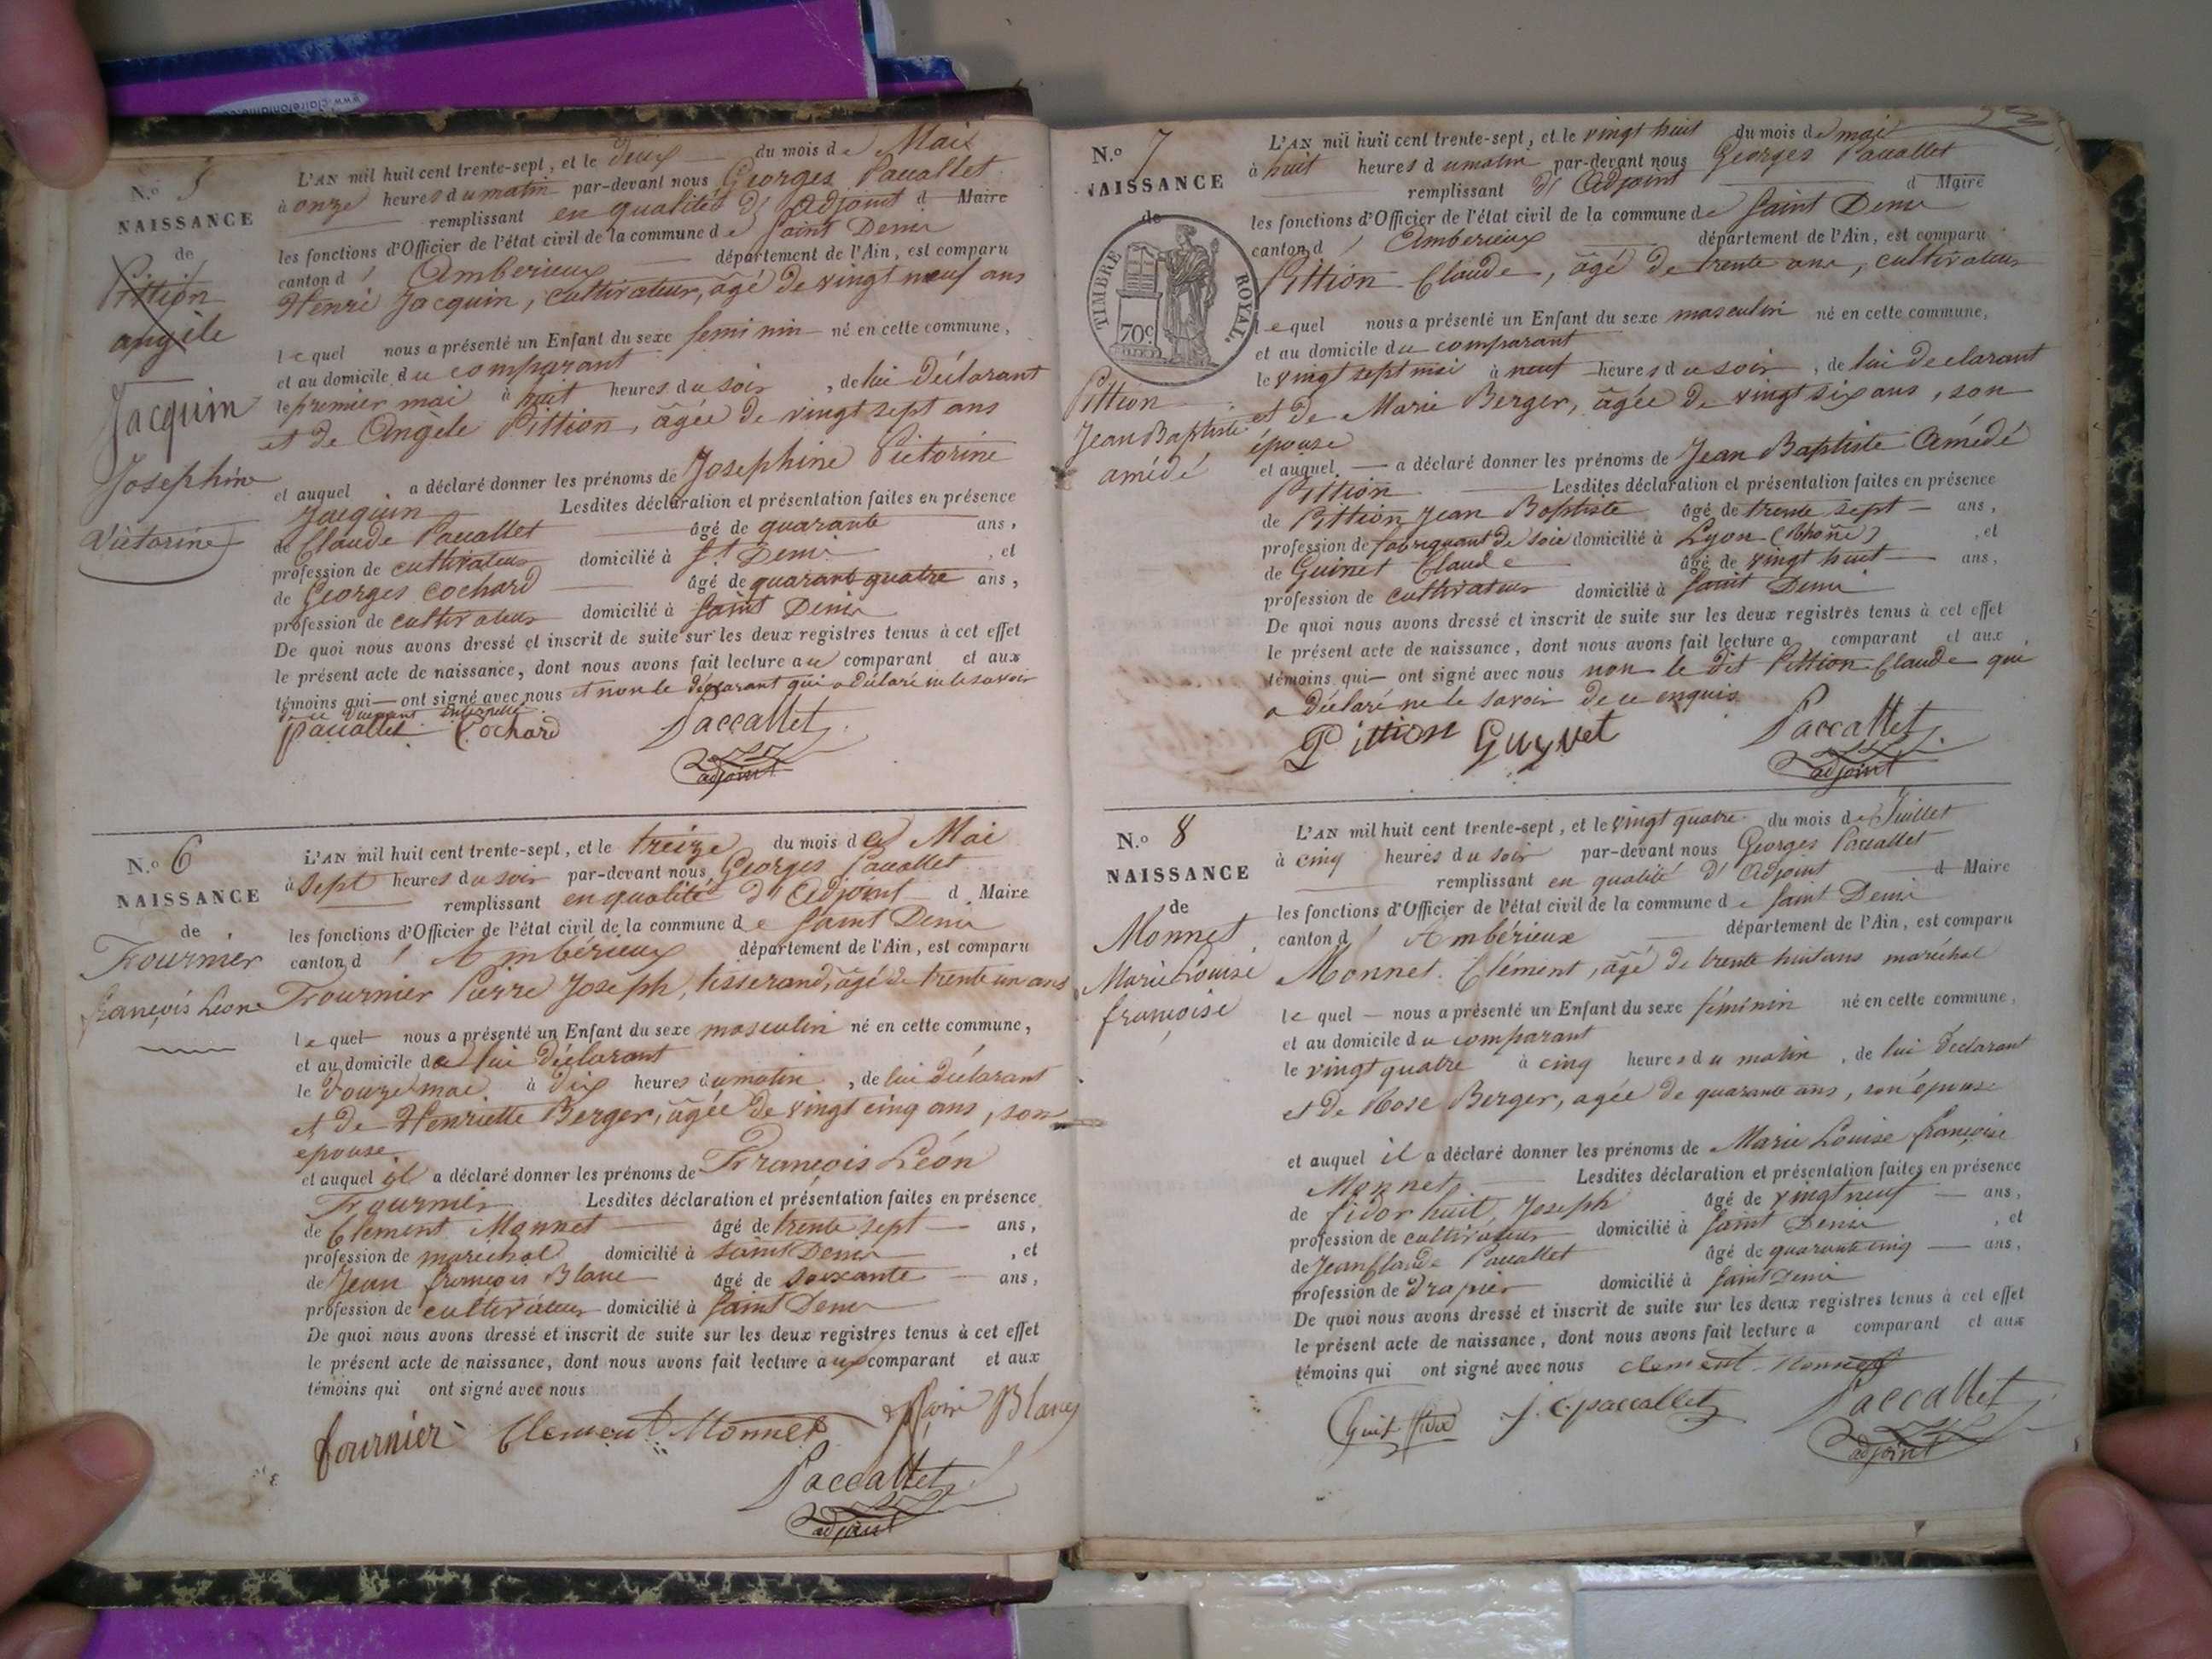 www.clairefontaine
N.o 5
NAISSANCE
de
Pittion
angèle
Jacquin
Joséphine
Victorine
L'AN mil huit cent trente-sept, et le deux du mois de Mai
à onze heures du matin par-devant nous Georges Paccallet
remplissant en qualité d' Adjoint d Maire
les fonctions d'Officier de l'état civil de la commune de Saint Denis
canton d' Amberieux département de l'Ain, est comparu
Henri Jacquin, cultivateur, âgé de vingt neuf ans
lequel nous a présenté un Enfant du sexe feminin né en cette commune,
et au domicile du comparant
le premier mai à huit heures du soir, de lui déclarant
et de Angèle Pittion, âgée de vingt sept ans
et auquel a déclaré donner les prénoms de Josephine Victorine
Jacquin Lesdites déclaration et présentation faites en présence
de Claude Paccallet âgé de quarante ans,
profession de cultivateur domicilié à St Denis, et
de Georges Cochard âgé de quarante quatre ans,
profession de cultivateur domicilié à Saint Denis
De quoi nous avons dressé et inscrit de suite sur les deux registres tenus à cet effet
le présent acte de naissance, dont nous avons fait lecture au comparant et aux
témoins qui — ont signé avec nous et non le déclarant qui a déclaré ne le savoir
de ce interpellé
Paccallet Cochard Paccallet
adjoint
N.o 6
NAISSANCE
de
Fournier
françois Léon
L'AN mil huit cent trente-sept, et le treize du mois de Mai
à sept heures du soir par-devant nous Georges Paccallet
remplissant en qualité d' Adjoint d Maire
les fonctions d'Officier de l'état civil de la commune de Saint Denis
canton d' Ambérieux département de l'Ain, est comparu
Fournier Pierre Joseph, tisserand, âgé de trente un ans
lequel nous a présenté un Enfant du sexe masculin né en cette commune,
et au domicile de lui déclarant
le douze mai à dix heures du matin, de lui déclarant
et de Henriette Berger, âgée de vingt cinq ans, son
epouse
et auquel il a déclaré donner les prénoms de François Léon
Fournier Lesdites déclaration et présentation faites en présence
de Clement Monnet âgé de trente sept — ans,
profession de maréchal domicilié à Saint Denis, et
de Jean françois Blanc âgé de soixante — ans,
profession de cultivateur domicilié à Saint Denis
De quoi nous avons dressé et inscrit de suite sur les deux registres tenus à cet effet
le présent acte de naissance, dont nous avons fait lecture aux comparant et aux
témoins qui ont signé avec nous
fournier Clement Monnet Blanc
Paccallet
adjoint
N.o 7
NAISSANCE
de
TIMBRE ROYAL.
70c
Pittion
Jean Baptiste
amédé
L'AN mil huit cent trente-sept, et le vingt huit du mois de mai
à huit heures du matin par-devant nous Georges Paccallet
remplissant d' Adjoint d Maire
les fonctions d'Officier de l'état civil de la commune de Saint Denis
canton d' Amberieux département de l'Ain, est comparu
Pittion Claude, âgé de trente ans, cultivateur
lequel nous a présenté un Enfant du sexe masculin né en cette commune,
et au domicile du comparant
le vingt sept mai à neuf heures du soir, de lui declarant
et de Marie Berger, âgée de vingt six ans, son
épouse
et auquel — a déclaré donner les prénoms de Jean Baptiste Amédé
Pittion Lesdites déclaration et présentation faites en présence
de Pittion Jean Baptiste âgé de trente sept — ans,
profession de fabriquant de soie domicilié à Lyon (Rhône), et
de Guinet Claude âgé de vingt huit — ans,
profession de cultivateur domicilié à Saint Denis
De quoi nous avons dressé et inscrit de suite sur les deux registres tenus à cet effet
le présent acte de naissance, dont nous avons fait lecture a comparant et aux
témoins qui — ont signé avec nous non le dit Pittion Claude qui
a déclaré ne le savoir de ce enquis
Pittion Guynet Paccallet
adjoint
N.o 8
NAISSANCE
de
Monnet
Marie Louise
françoise
L'AN mil huit cent trente-sept, et le vingt quatre du mois de Juillet
à cinq heures du soir par-devant nous Georges Paccallet
remplissant en qualité d' Adjoint d Maire
les fonctions d'Officier de l'état civil de la commune de Saint Denis
canton d' Ambérieux département de l'Ain, est comparu
Monnet Clément, âgé de trente huit ans maréchal
lequel — nous a présenté un Enfant du sexe féminin né en cette commune,
et au domicile du comparant
le vingt quatre à cinq heures du matin, de lui declarant
et de Rose Berger, agée de quarante ans, son épouse
et auquel il a déclaré donner les prénoms de Marie Louise françoise
Monnet Lesdites déclaration et présentation faites en présence
de Joseph âgé de vingt neuf — ans,
profession de cultivateur domicilié à Saint Denis, et
de Jean Claude Paccallet âgé de quarante cinq — ans,
profession de Drapier domicilié à Saint Denis
De quoi nous avons dressé et inscrit de suite sur les deux registres tenus à cet effet
le présent acte de naissance, dont nous avons fait lecture a comparant et aux
témoins qui ont signé avec nous Clement Monnet
J. C paccallet Paccallet
adjoint